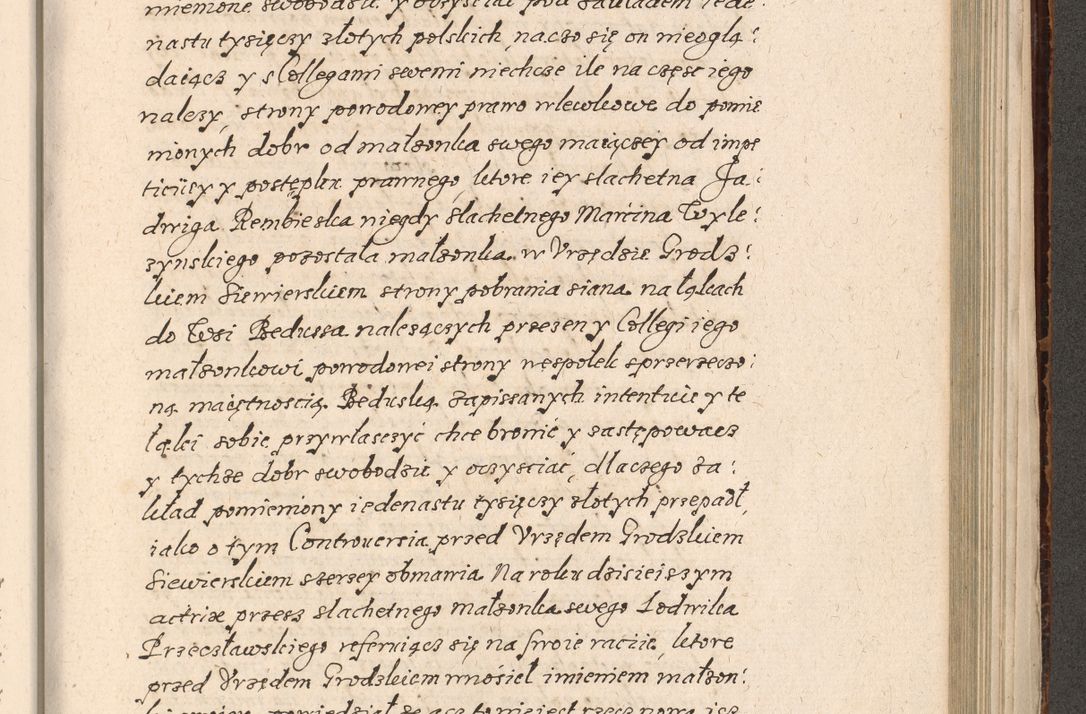 mienione swobodzic y oczysciac pod zakładem iede:
nastu tysięczy złotych polskich naczo się on nieoglą:
daiącz y s Collegami swemi niechcze ile na częsc iego
nalezy, strony powodowey prawo wlewkowe do pomie
nionych dobr od małzonka swego maiączey od impe
ticiiey y postępku prawnego ktore iey slachetna Ja:
dwiga Rembieska niegdy slachetnego Marcina Wyle:
zynskiego pozostała małzonka w Vrzędzie Grodz:
kiem Siewierskiem strony pobrania siana na łąkach
do Wsi Bedussa nalezączych przezen y Collegi iego
małzonkowi powodowei strony wespołek z przerzeczo:
ną maiętnoscią Beduską zapissanych intentuie y te
łąki sobie przywłasczyć chce bronić y zastępowacz
y tychze dobr swobodzic y oczysciać, dlaczego za:
kład pomieniony iedenastu tysięczy złotych przepadł,
iako o tym Controuersia przed Vrzędem Grodzkiem
Siewierskiem szerzey obmawia Na roku dzisieiszym
actrix przesz slachetnego Małzonka swego Lodwika
Przeczławskiego referuiącz się na swoie raciie, ktore
przed Vrzędem Grodzkiem wnosieł imieniem małzon: